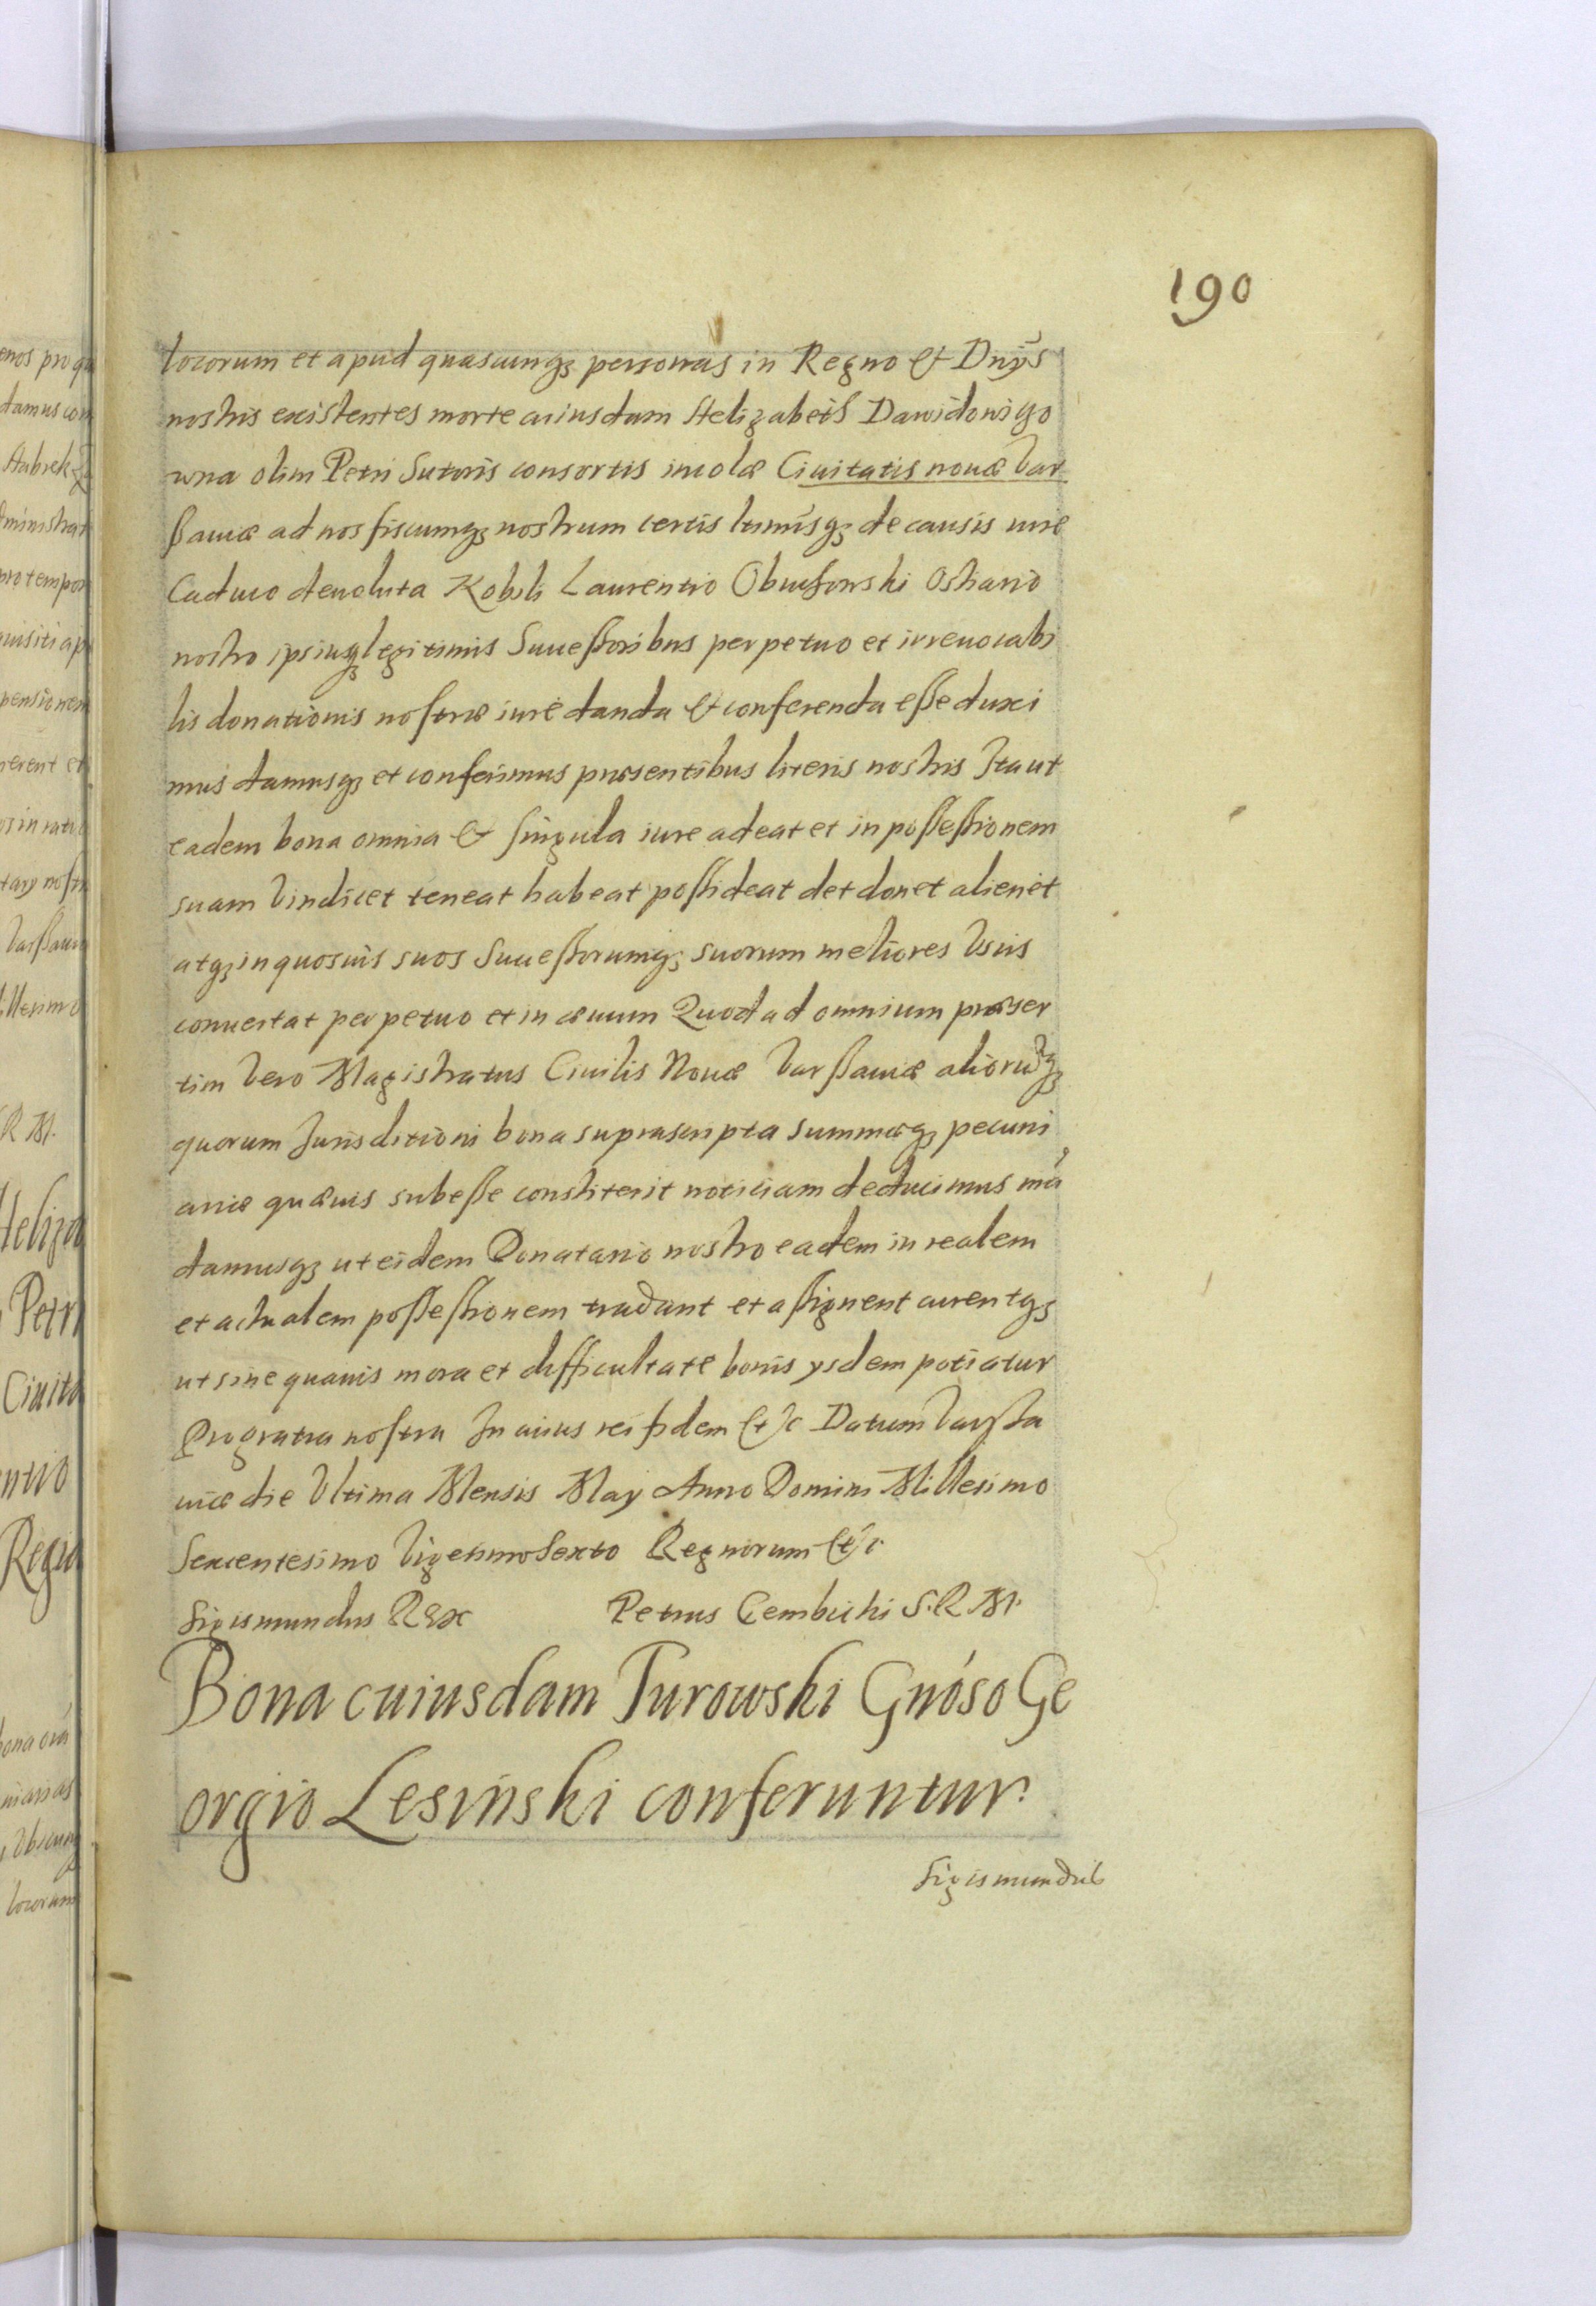 190
locorum et apud quascunqꝫ personas in Regno & Dnÿs
nostris existentes morte cuiusdam Helizabeth Dawidowigo
wna olim Petri Sutoris consortis incolæ Ciuitatis nouæ Var
ßauiæ ad nos fiscumqꝫ nostrum certis ltimisqꝫ de causis iure
Caduco deuoluta Nobili Laurentio Ostiario
nostro ipsiusqꝫ legitimis Successoribus perpetuo et irreuocabi
lis donationis nostræ iure danda & conferenda esse duxi
mus damusqꝫ et conferimus præsentibus literis nostris Ita ut
eadem bona omnia & singula iure adeat et in possessionem
suam Vindicet teneat habeat possideat det donet alienet
atqꝫ in quosuis suos Successorumqꝫ suorum meliores Vsus
conuertat perpetuo et in æuum Quod ad omnium præser
tim Vero Magistratus Ciuilis Nouæ Varßauiæ alioruqꝫ
quorum Jurisditioni bona suprascripta summæqꝫ pecuni
ariæ quæuis subesse constiterit noticiam deducimus mã
damusqꝫ ut eidem Donatario nostro eadem in realem
et actualem possessionem tradant et assignent curentqꝫ
ut sine quauis mora et difficultate bonis ysdem potiatur
Pro gratia nostra In cuius rei fidem &c Datum Varssa
uiæ die Vltima Mensis May Anno Domini Millesimo
Sexcentesimo Vigesimo Sexto Regnorum &c
Sigismundus REX Petrus Gembicki S.R.M.
Bona cuiusdam Turowski Gnóso Ge
orgio Lesinski conferuntur.
Sigismundus